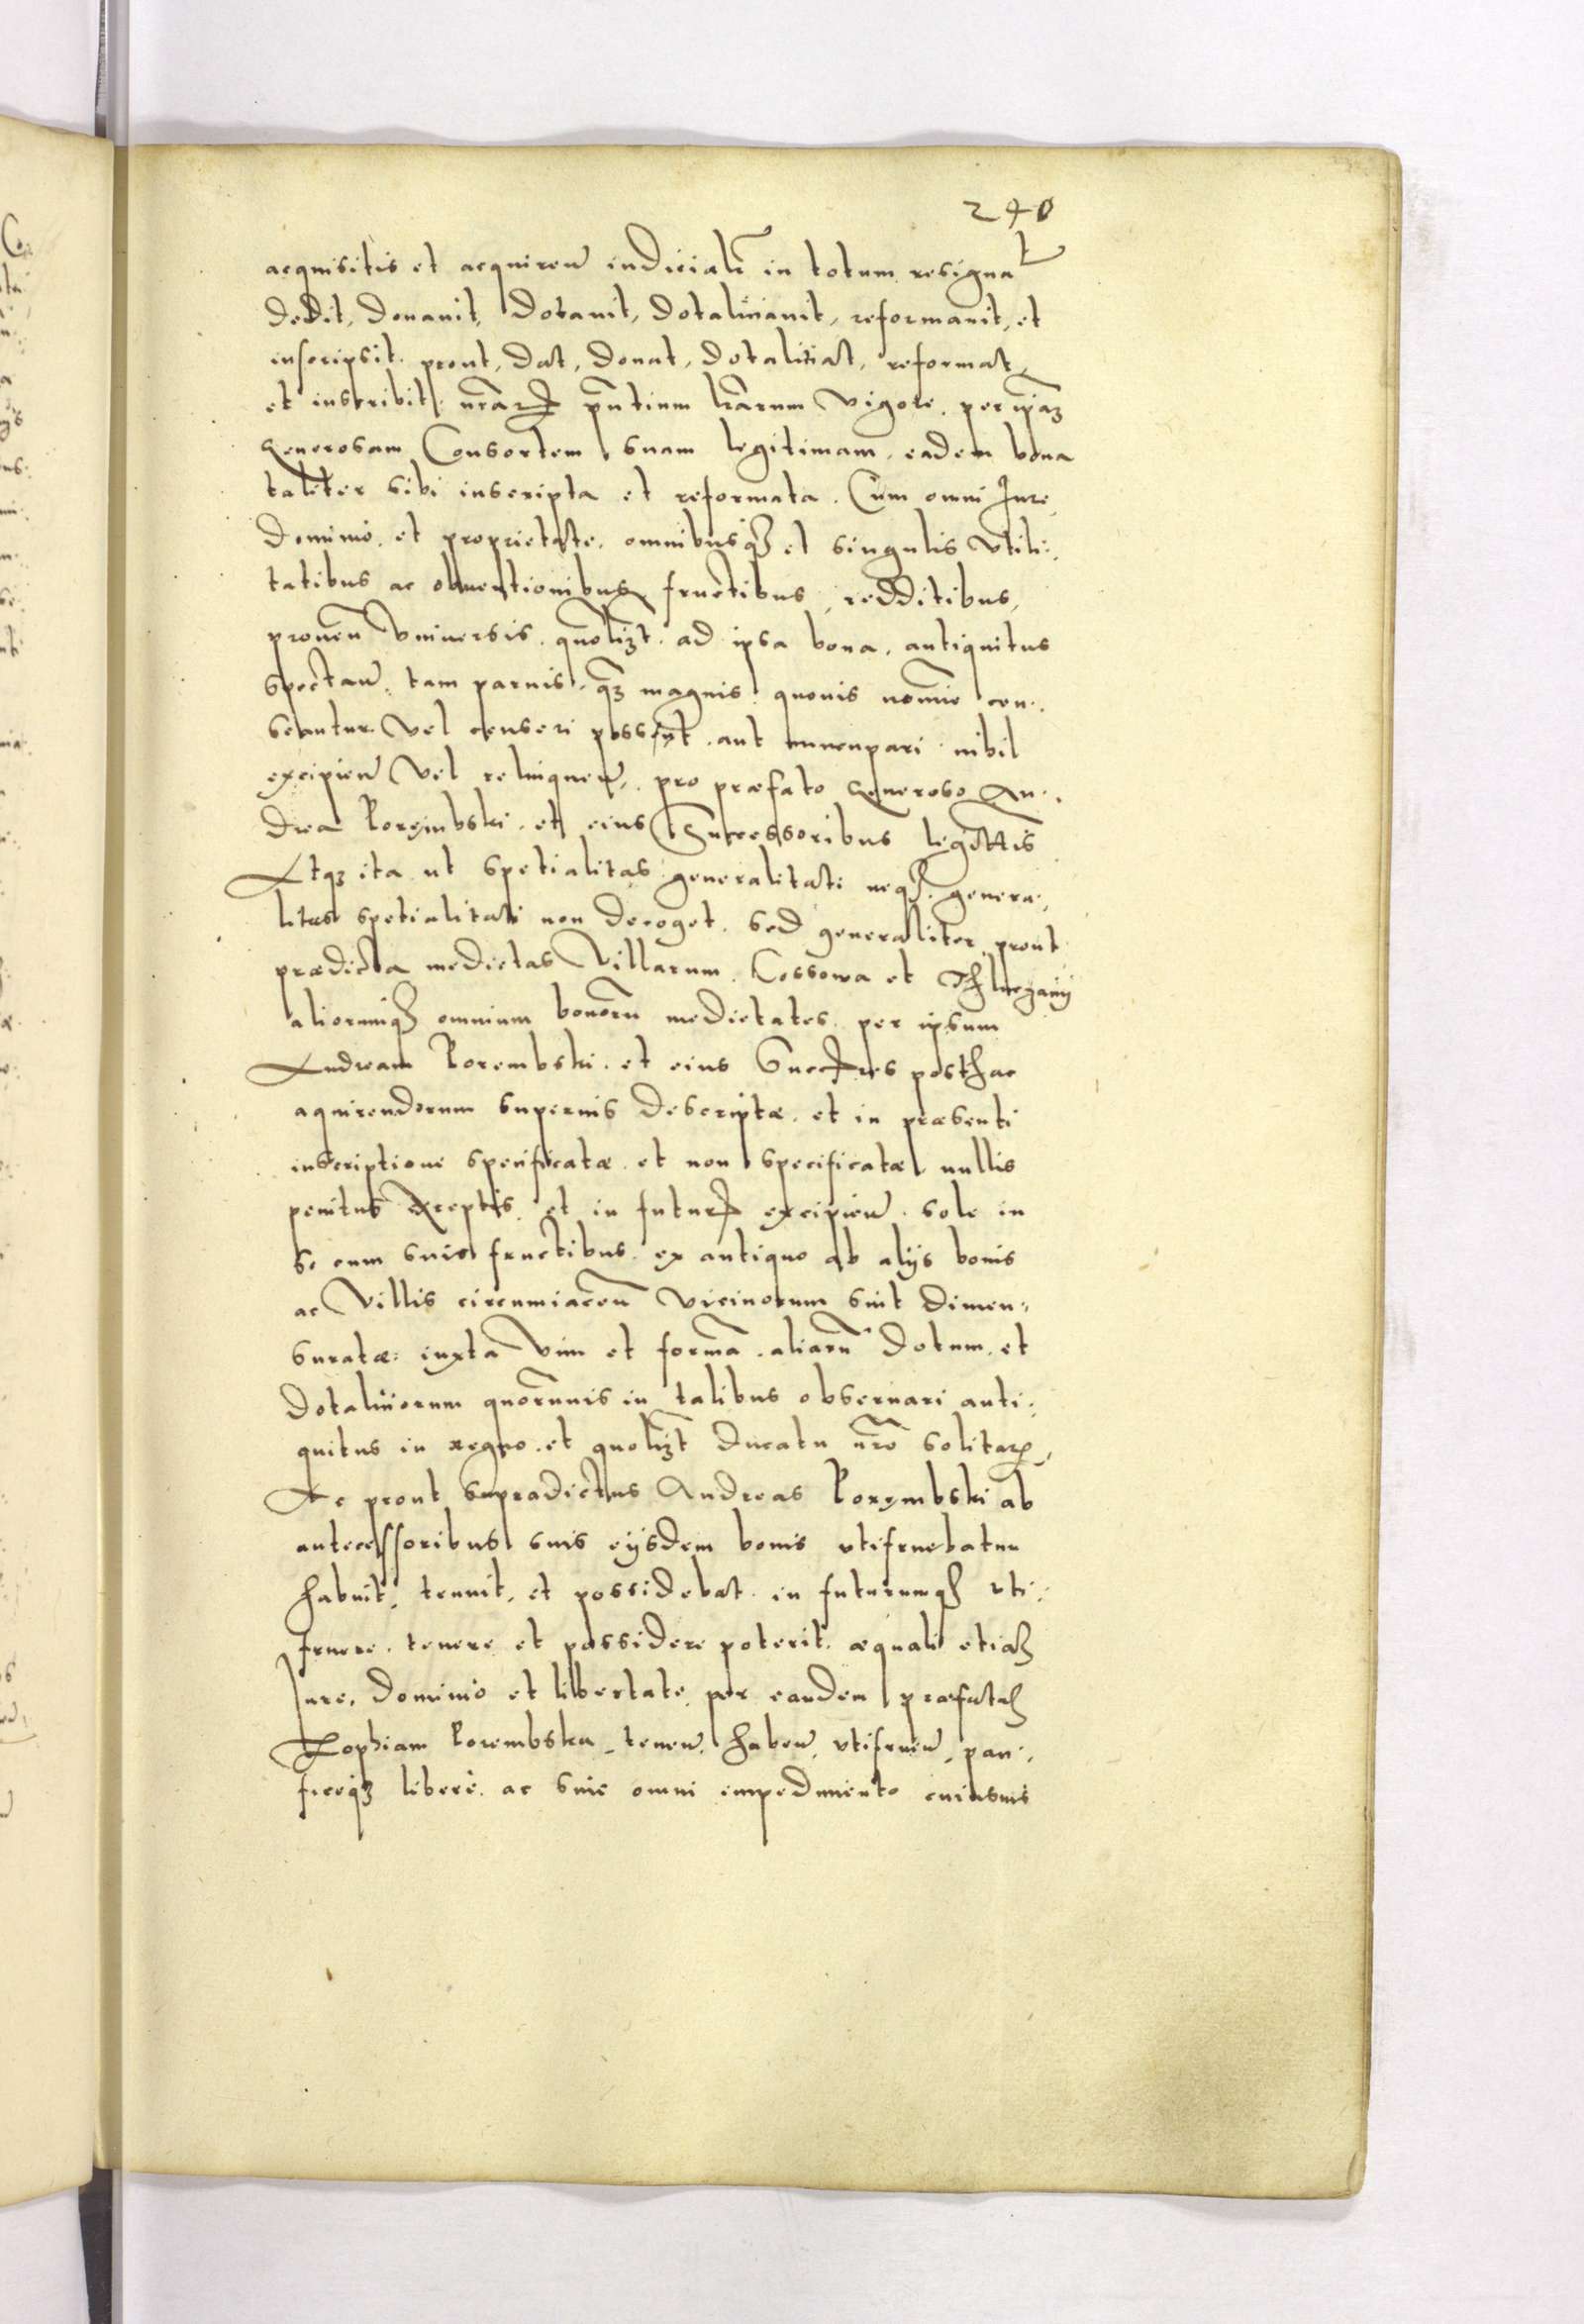 240
acquisitis et acquiren iudicialr in totum resignat
dedit, donauit, dotauit, dotaliciauit, reformauit, et
inscripsit. prout, dat, donat, dotalitiat, reformat,
et inscribit. nrar pntium lrarum vigore. per ipaz
generosam Consortem suam legitimam. eadem bona
taliter sibi inscripta et reformata. Cum omni Iure,
dominio. et proprietate. omnibusq et singulis vtili:
tatibus ac obuentionibus, fructibus, redditibus,
prouen vniuersis. quolizt. ad ipsa bona. antiquitus
spectan. tam paruis. qz magnis. quouis nomine cen:
seantur vel censeri possint. aut nuncupari nihil
excipien vel relinquen. pro præfato generoso An:
drea Porembski. et eius Successoribus legittis
Atqz ita ut spetialitas generalitati neqz. genera:
litas spetialitati non deroget. sed generaliter prout
prædicta medietas Villarum. Cossowa et
aliorumq omnium bonoru medietates. per ipsum
Andream Porembski. et eius posthac
aquirendorum superius descriptæ. et in præsenti
inscriptione specificatæ. et non specificatæ nullis
penitus exceptis. et in futur excipien. sole in
se cum suis fructibus. ex antiquo ab alijs bonis
ac Villis circumiacen vicinorum sint dimen:
suratæ: iuxta vim et forma. aliaru dotum. et
dotaliciorum quorumuis in talibus obseruari anti:
quitus in regno. et quolizt ducatu nro solitar,
Ac prout supradictus Andreas Porembski ab
antecessoribus suis eijsdem bonis vtifruebatur
habuit, tenuit, et possidebat. in futurumq vti:
fruere. tenere et possidere poterit. æquali etiaz
Iure, dominio et libertate. per eandem præfataz
Zophiam Porembska, tenen, haben, vtifruen, pari:
ficeqz libere. ac sine omni impedimento cuiusuis